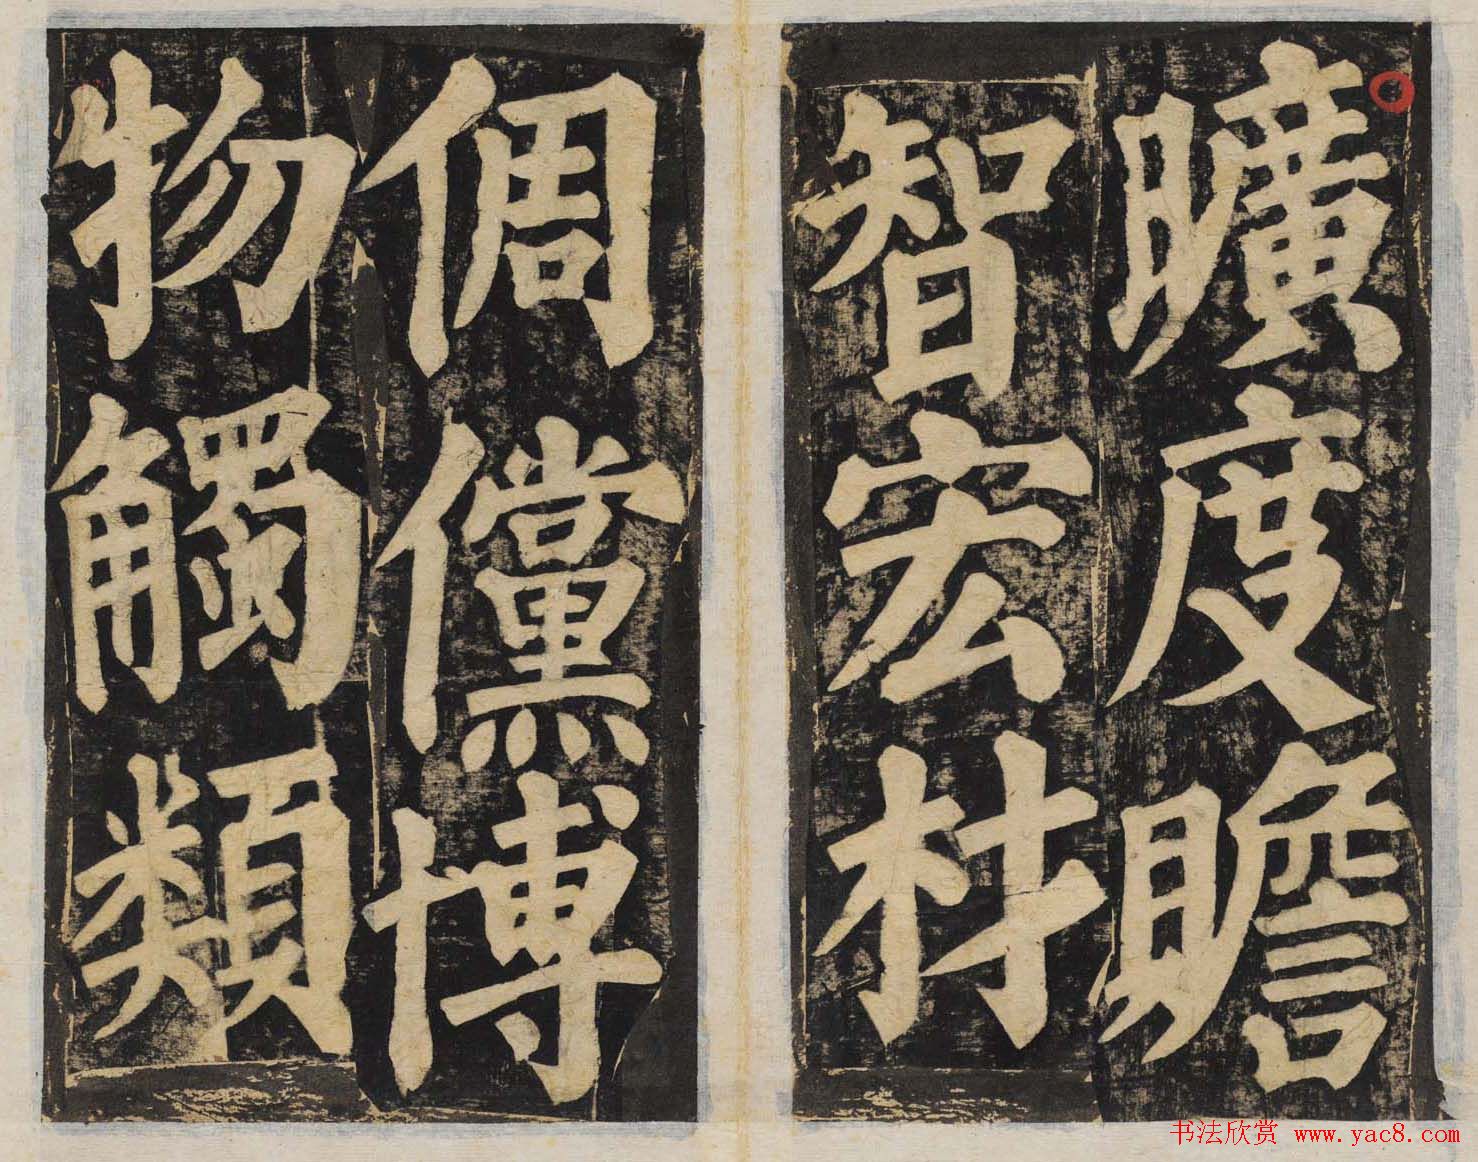 曠度贍
智宏材
倜儻博
物觸類
书法欣赏 www.yac8.com